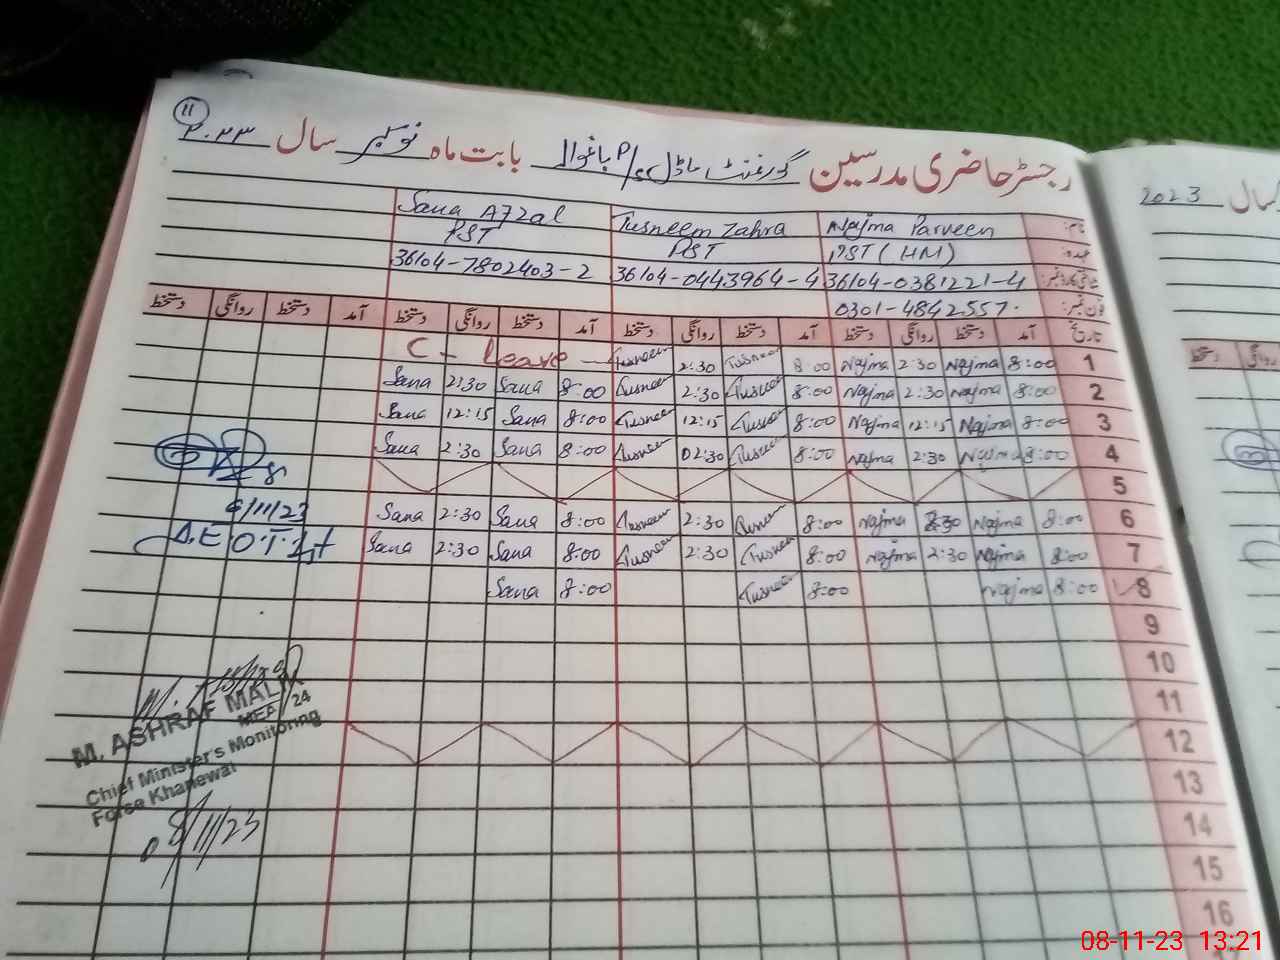 11
رجسٹر حاضری مدرسین گورنمنٹ ماڈل P/S باغوالہ بابت ماہ نومبر سال ۲۰۲۳
نام: Najma Parveen Tusneem Zahra Sana Afzal
عہدہ: PST (HM) PST PST
شناختی کارڈ نمبر: 36104-0381221-4 36104-0443964-4 36104-7802403-2
فون نمبر: 0301-4842557
تاریخ آمد دستخط روانگی دستخط آمد دستخط روانگی دستخط آمد دستخط روانگی دستخط آمد دستخط روانگی دستخط
1 8:00 Najma 2:30 Najma 8:00 Tusneem 2:30 Tusneem C - leave
2 8:00 Najma 2:30 Najma 8:00 Tusneem 2:30 Tusneem 8:00 Sana 2:30 Sana
3 8:00 Najma 12:15 Najma 8:00 Tusneem 12:15 Tusneem 8:00 Sana 12:15 Sana
4 8:00 Najma 2:30 Najma 8:00 Tusneem 02:30 Tusneem 8:00 Sana 2:30 Sana
5
6 8:00 Najma 2:30 Najma 8:00 Tusneem 2:30 Tusneem 8:00 Sana 2:30 Sana
7 8:00 Najma 2:30 Najma 8:00 Tusneem 2:30 Tusneem 8:00 Sana 2:30 Sana
8 8:00 Najma 8:00 Tusneem 8:00 Sana
9
10
11
12
13
14
15
16
6/11/23
M. ASHRAF MALIK
MEA 24
Chief Minister's Monitoring
Force Khanewal
08/11/23
2023 سال
دستخط
08-11-23 13:21